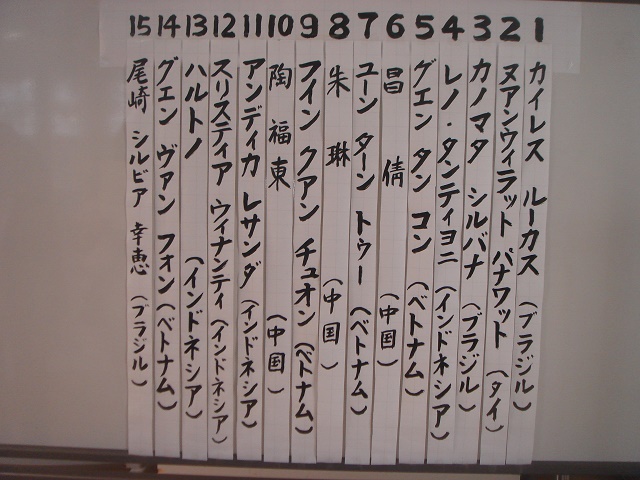 1 カイレス ルーカス (ブラジル)
2 ヌアンウィラット パナワット (タイ)
3 カノマタ シルバナ (ブラジル)
4 レノ・タンティヨニ (インドネシア)
5 グエン タン コン (ベトナム)
6 昌 倩 (中国)
7 ユーン ターン トゥー (ベトナム)
8 朱 琳 (中国)
9 フイン クアン チュオン (ベトナム)
10 陶 福東 (中国)
11 アンディカ レサンダ (インドネシア)
12 スリスティア ウィナンティ (インドネシア)
13 ハルトノ (インドネシア)
14 グェン ヴァン フォン (ベトナム)
15 尾崎 シルビア 幸恵 (ブラジル)